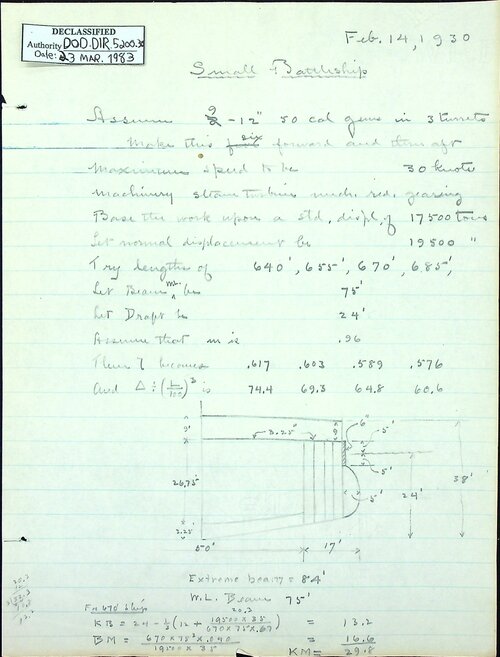 DECLASSIFIED
Authority DOD.DIR.5200.30
Date: 23 MAR. 1983
Feb. 14, 1930
Small Battleship
Assume 9 -12" 50 cal guns in 3 turrets
Make this six forward and three aft
Maximum speed to be 30 knots
Machinery steam turbine mech. red. gearing
Base the work upon a std. displ. of 17500 tons
Let normal displacement be 19500 "
Try lengths of 640', 655', 670', 685',
Let Beam WL be 75'
Let Draft be 24'
Assume that m is .96
Then l becomes .617 .603 .589 .576
and Δ ÷ (L/100)³ is 74.4 69.3 64.8 60.6
9' 3.25" 9' 6" 5'
5'
26.75' 5' 24' 38'
3.25'
50' 17'
Extreme beam = 84'
W.L. Beam 75'
For 670' ship
20.3
KB = 24 - 1/3 (12 + 19500 x 35 / 670 x 75 x .67) = 13.2
BM = 670 x 75³ x .040 / 19500 x 35 = 16.6
KM = 29.8